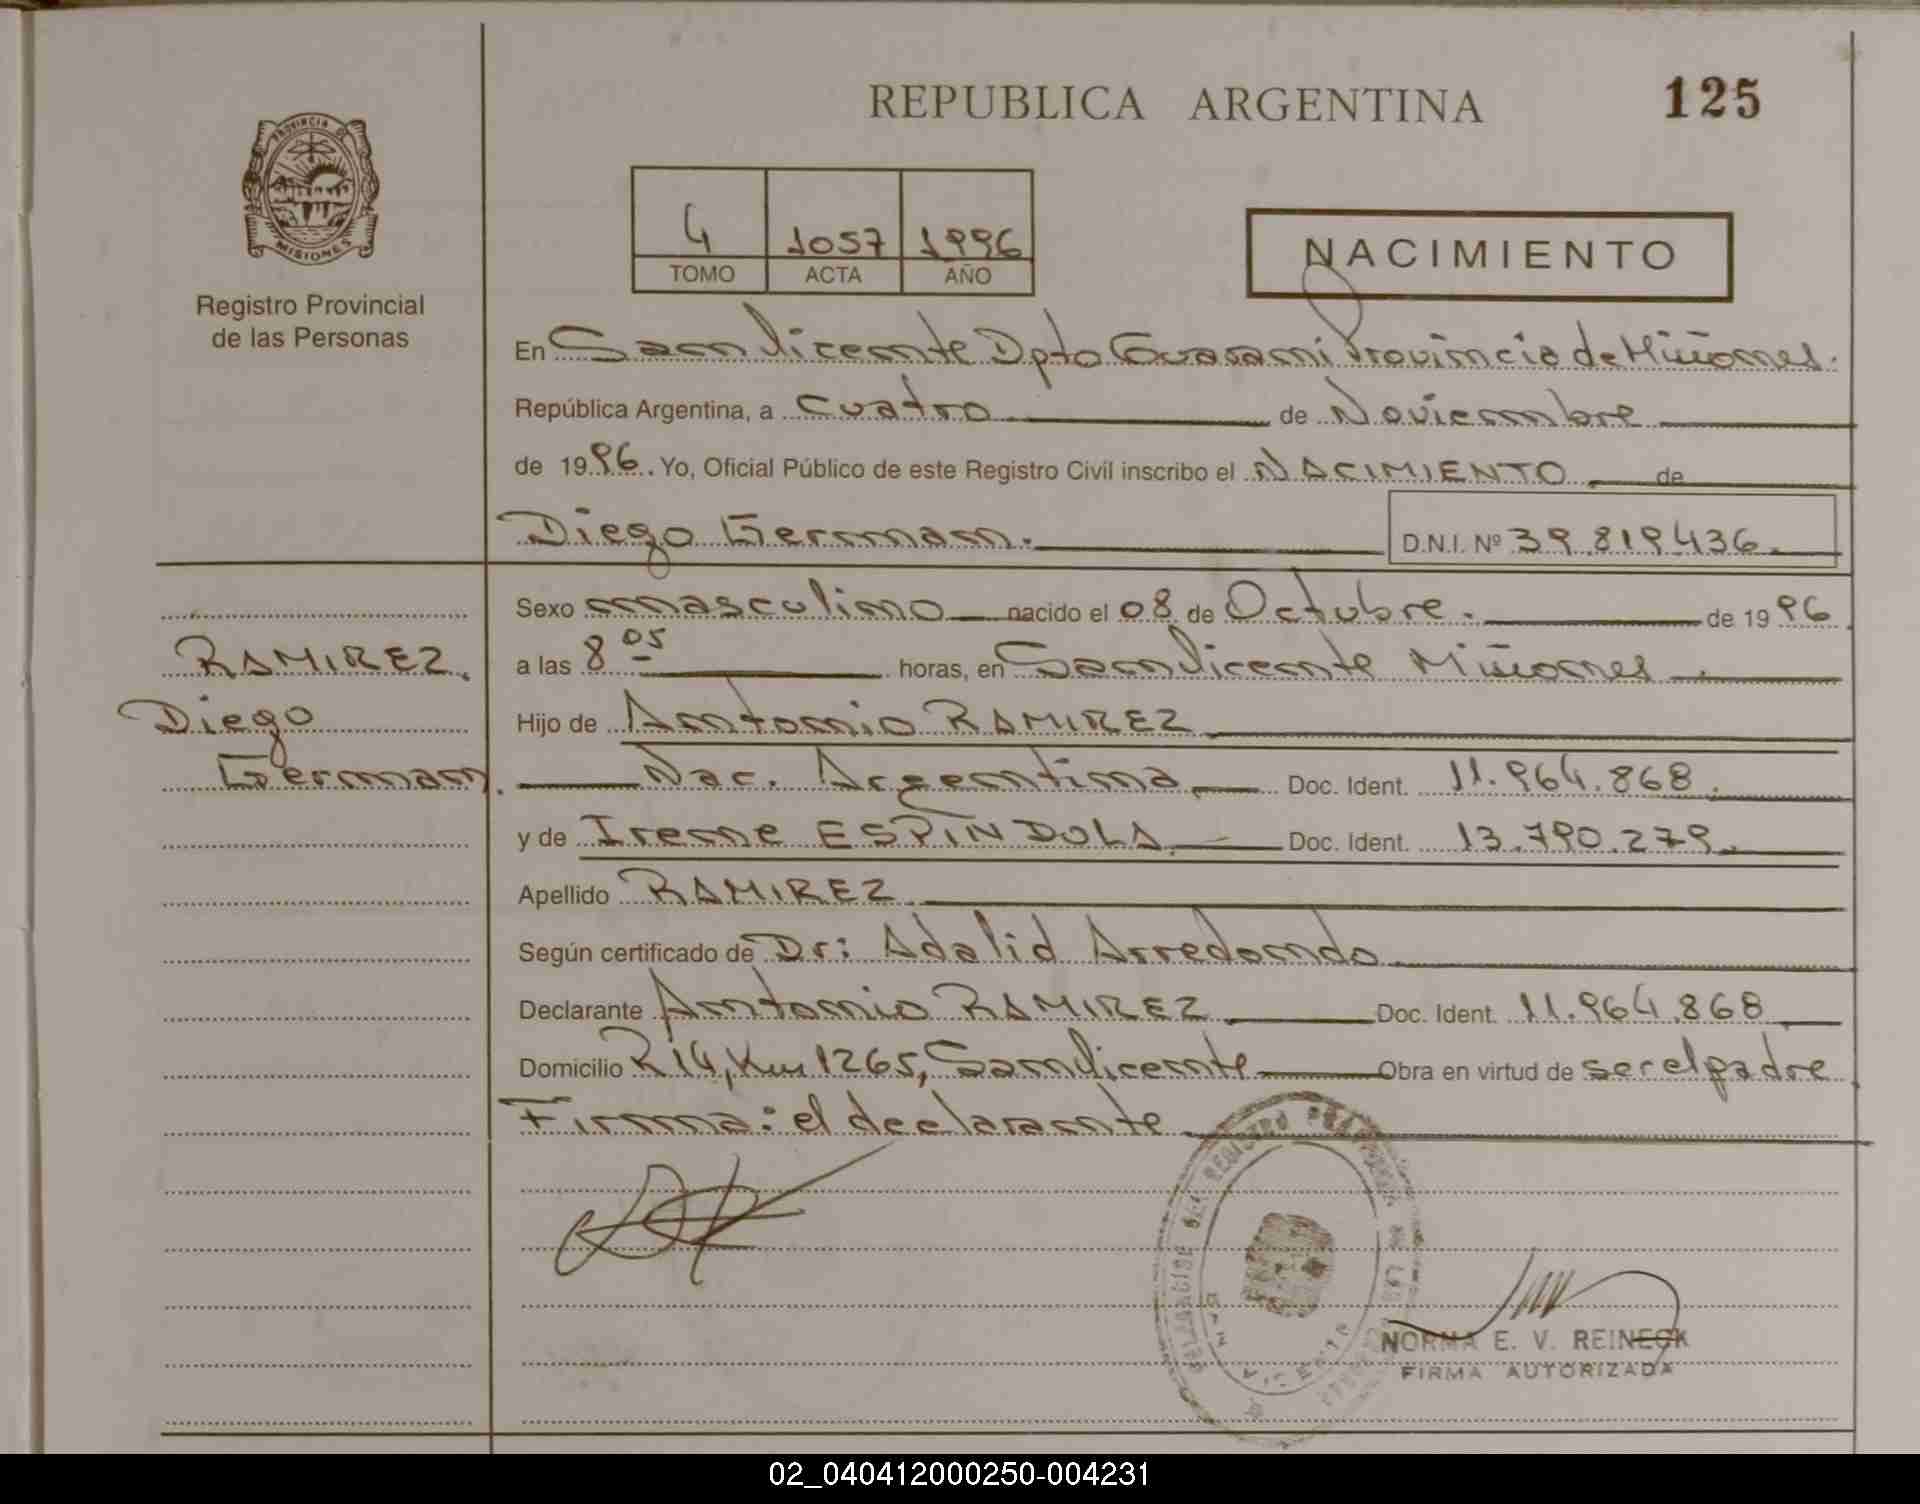 REPUBLICA ARGENTINA
125
PROVINCIA DE
MISIONES
Registro Provincial
de las Personas
4 1057 1996
TOMO ACTA AÑO
NACIMIENTO
En San Vicente Dpto Guarani Provincia de Misiones.
República Argentina, a cuatro de Noviembre
de 1996. Yo, Oficial Público de este Registro Civil inscribo el NACIMIENTO de
Diego German. D.N.I. Nº 39.819.436.
Sexo masculino nacido el 08 de Octubre. de 1996
RAMIREZ.
Diego
German.
a las 8 05 horas, en San Vicente Misiones.
Hijo de Antonio RAMIREZ
Nac. Argentina. Doc. Ident. 11.964.868.
y de Irene ESPÍNDOLA. Doc. Ident. 13.790.279.
Apellido RAMIREZ.
Según certificado de Dr: Adalid Arredondo
Declarante Antonio RAMIREZ Doc. Ident. 11.964.868
Domicilio R 14, Km 1265, San Vicente Obra en virtud de ser el padre
Firma: el declarante
DEL REGISTRO PROVINCIAL DE LAS PERSONAS
SAN VICENTE
NORMA E. V. REINECK
FIRMA AUTORIZADA
02_040412000250-004231